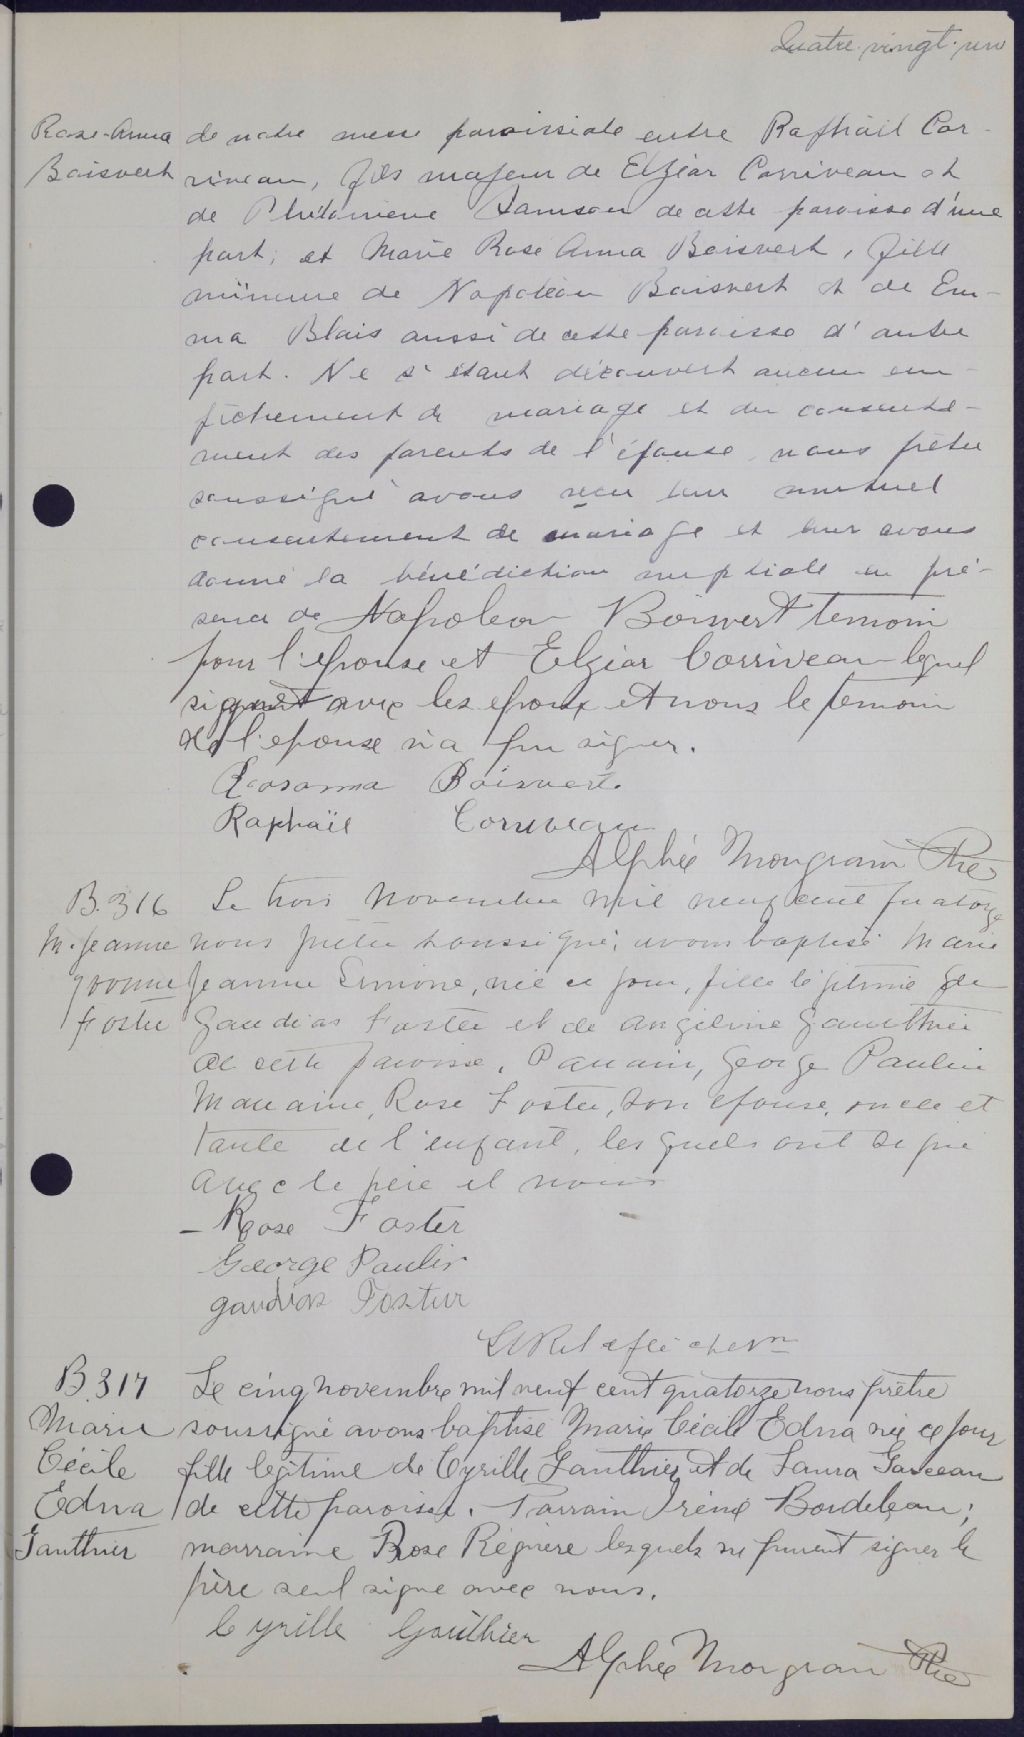 Quatre-vingt-un
Rose-Anna
Boisvert
de notre messe paroissiale entre Raphaël Cor-
riveau, fils majeur de Elzéar Corriveau et
de Philomène Samson de cette paroisse d'une
part; et Marie Rose Anna Boisvert, fille
mineure de Napoléon Boisvert et de Em-
ma Blais aussi de cette paroisse d'autre
part. Ne s'étant découvert aucun em-
pêchement de mariage et du consente-
ment des parents de l'épouse, nous prêtre
soussigné avons reçu leur mutuel
consentement de mariage et leur avons
donné la bénédiction nuptiale en pré-
sence de Napoleon Boisvert temoin
pour l'epouse et Elzéar Corriveau lequel
signet avec les epoux et nous le temoin
de l'epouse n'a pu signer.
Rosanna Boisvert.
Raphaël Corriveau
Alphée Mongrain Ptre
B. 316
M. Jeanne
Yvonne
Foster
Le trois novembre mil neuf cent quatorze
nous prêtre soussigné, avons baptisé Marie
Jeanne Simone, née ce jour, fille légitime de
Gaudias Foster et de Angéline Gauthier
de cette paroisse. Parrain, George Paulin
Marraine, Rose Foster, son épouse, oncle et
tante de l'enfant, lesquels ont signé
avec le père et nous
Rose Foster
George Paulin
gaudias Foster
B. 317
Marie
Cécile
Edna
Gauthier
Le cinq novembre mil neuf cent quatorze nous prêtre
soussigné avons baptisé Marie Cécile Edna née ce jour
fille légitime de Cyrille Gauthier et de Laura Garceau
de cette paroisse. Parrain Iréné Bordeleau;
marraine Rose Régnière lesquels ne purent signer le
père seul signe avec nous.
Cyrille Gauthier
Alphée Mongrain Ptre